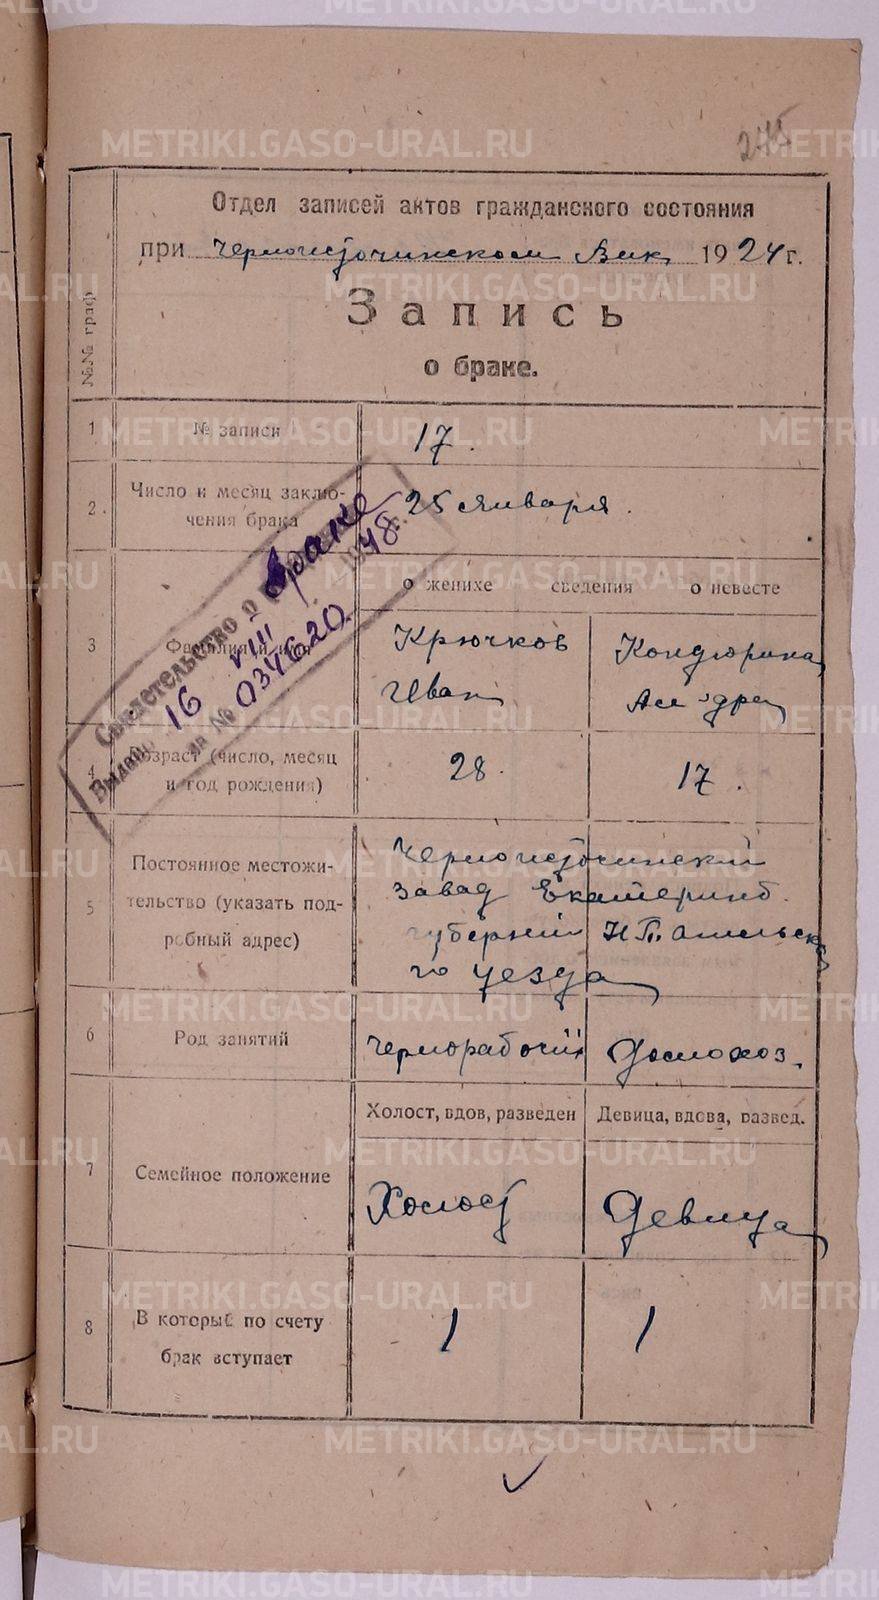 245
Отдел записей актов гражданского состояния
при Черноисточинском Вик, 1924 г.
Запись
о браке.
№№ граф
1 № записи 17.
2. Число и месяц заключения брака 25 января.
о женихе сведения о невесте
3 Фамилия и имя
Крючков Кондюрина
Иван
4 Возраст (число, месяц и год рождения) 28. 17.
5 Постоянное местожительство (указать подробный адрес)
Черноисточинский
завод Екатеринб.
губернии Н Тагильско
го уезда
6 Род занятий чернорабочий домохоз.
Холост, вдов, разведен Девица, вдова, развед.
7 Семейное положение Холост Девица
8 В который по счету брак вступает 1 1
Свидетельство о браке
Выдано 16 VIII 1948.
за № 034620
METRIKI.GASO-URAL.RU